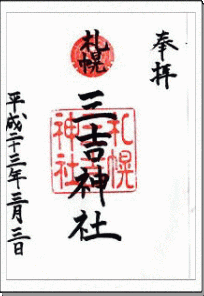 奉拝
札幌
三吉神社
札幌
三吉
神社
平成二十三年三月三日